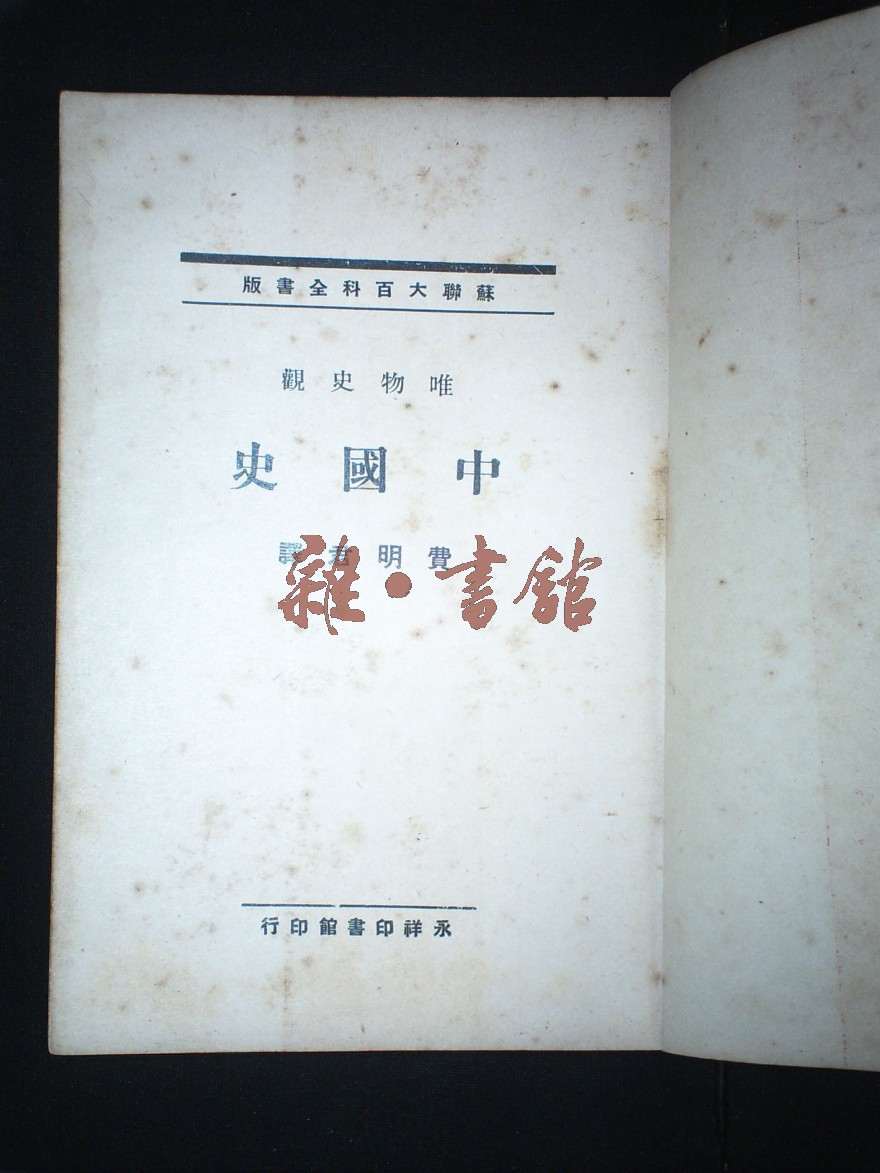 蘇聯大百科全書版
唯物史觀
中國史
費明君譯
雜·書館
永祥印書館印行